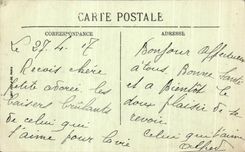 CARTE POSTALE
CORRESPONDANCE
ADRESSE
Le 27. 4. 17
Recois chère
petite adorée les
baisers brûlants
de celui qui
t'aime pour la vie
Bonjour affectueux
à tous, Bonne santé
et à Bientôt le
doux plaisir de te
revoir.
Celui qui t'aime
Alfred